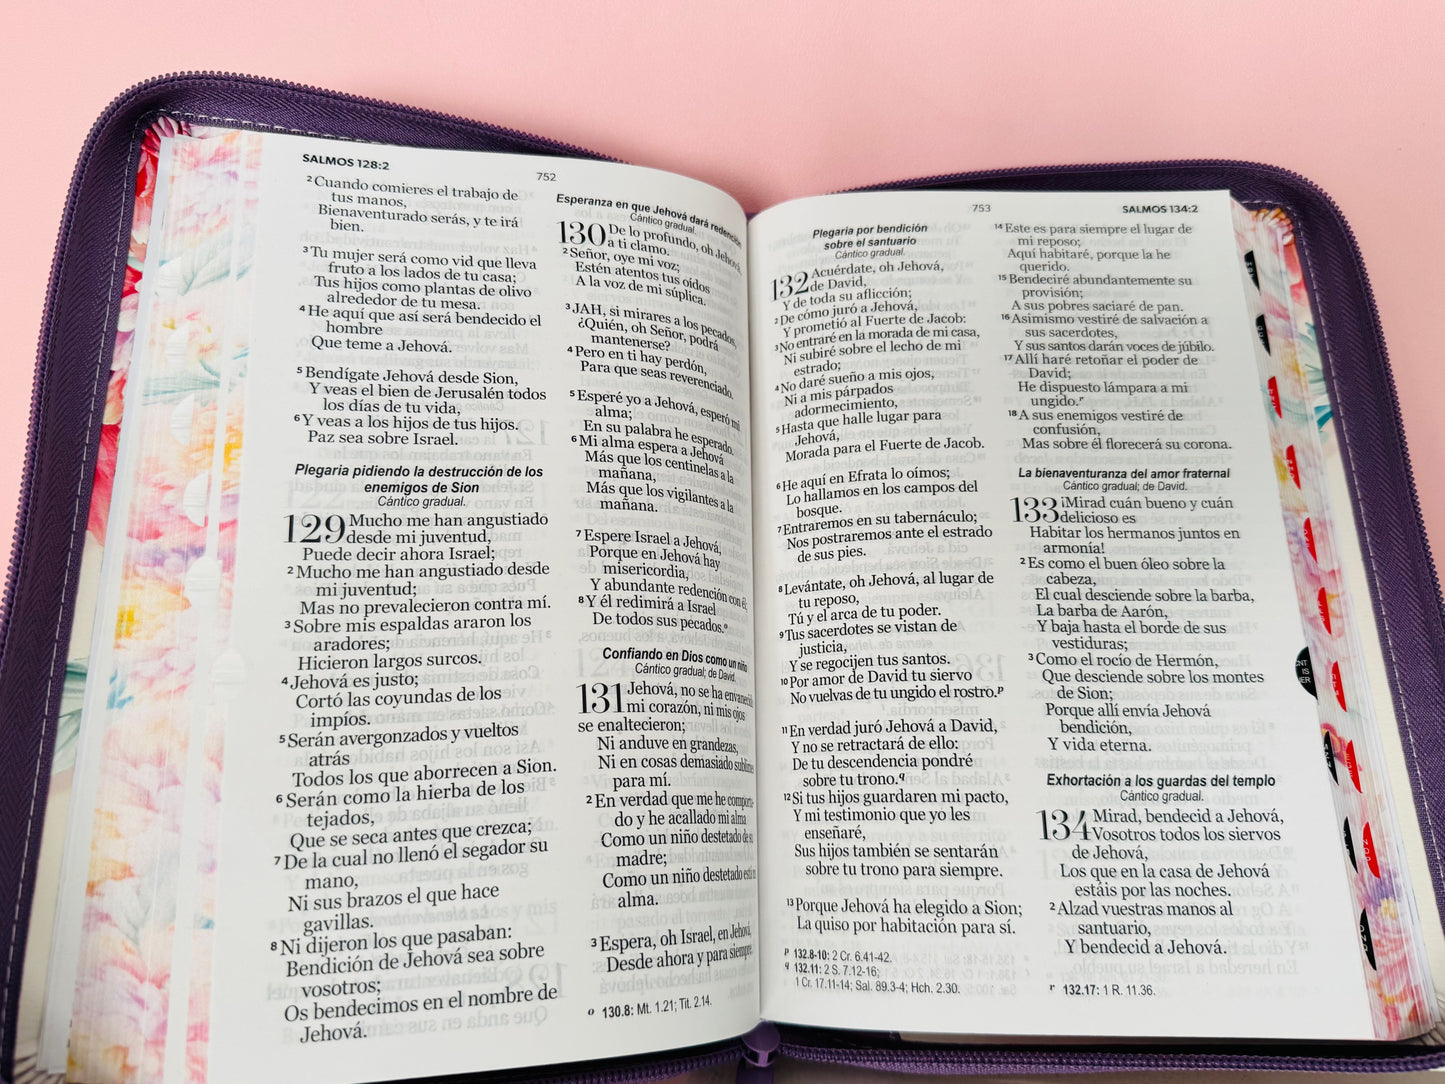 SALMOS 128:2
752
2 Cuando comieres el trabajo de
tus manos,
Bienaventurado serás, y te irá
bien.
3 Tu mujer será como vid que lleva
fruto a los lados de tu casa;
Tus hijos como plantas de olivo
alrededor de tu mesa.
4 He aquí que así será bendecido el
hombre
Que teme a Jehová.
5 Bendígate Jehová desde Sion,
Y veas el bien de Jerusalén todos
los días de tu vida,
6 Y veas a los hijos de tus hijos.
Paz sea sobre Israel.
Plegaria pidiendo la destrucción de los
enemigos de Sion
Cántico gradual.
129 Mucho me han angustiado
desde mi juventud,
Puede decir ahora Israel;
2 Mucho me han angustiado desde
mi juventud;
Mas no prevalecieron contra mí.
3 Sobre mis espaldas araron los
aradores;
Hicieron largos surcos.
4 Jehová es justo;
Cortó las coyundas de los
impíos.
5 Serán avergonzados y vueltos
atrás
Todos los que aborrecen a Sion.
6 Serán como la hierba de los
tejados,
Que se seca antes que crezca;
7 De la cual no llenó el segador su
mano,
Ni sus brazos el que hace
gavillas.
8 Ni dijeron los que pasaban:
Bendición de Jehová sea sobre
vosotros;
Os bendecimos en el nombre de
Jehová.
Esperanza en que Jehová dará redención
Cántico gradual.
130 De lo profundo, oh Jehová,
a ti clamo.
2 Señor, oye mi voz;
Estén atentos tus oídos
A la voz de mi súplica.
3 JAH, si mirares a los pecados,
¿Quién, oh Señor, podrá
mantenerse?
4 Pero en ti hay perdón,
Para que seas reverenciado.
5 Esperé yo a Jehová, esperó mi
alma;
En su palabra he esperado.
6 Mi alma espera a Jehová
Más que los centinelas a la
mañana,
Más que los vigilantes a la
mañana.
7 Espere Israel a Jehová,
Porque en Jehová hay
misericordia,
Y abundante redención con él;
8 Y él redimirá a Israel
De todos sus pecados.o
Confiando en Dios como un niño
Cántico gradual; de David.
131 Jehová, no se ha envanecido
mi corazón, ni mis ojos
se enaltecieron;
Ni anduve en grandezas,
Ni en cosas demasiado sublimes
para mí.
2 En verdad que me he comporta-
do y he acallado mi alma
Como un niño destetado de su
madre;
Como un niño destetado está mi
alma.
3 Espera, oh Israel, en Jehová,
Desde ahora y para siempre.
o 130.8: Mt. 1.21; Tit. 2.14.
753
SALMOS 134:2
Plegaria por bendición
sobre el santuario
Cántico gradual.
132 Acuérdate, oh Jehová,
de David,
Y de toda su aflicción;
2 De cómo juró a Jehová,
Y prometió al Fuerte de Jacob:
3 No entraré en la morada de mi casa,
Ni subiré sobre el lecho de mi
estrado;
4 No daré sueño a mis ojos,
Ni a mis párpados
adormecimiento,
5 Hasta que halle lugar para
Jehová,
Morada para el Fuerte de Jacob.
6 He aquí en Efrata lo oímos;
Lo hallamos en los campos del
bosque.
7 Entraremos en su tabernáculo;
Nos postraremos ante el estrado
de sus pies.
8 Levántate, oh Jehová, al lugar de
tu reposo,
Tú y el arca de tu poder.
9 Tus sacerdotes se vistan de
justicia,
Y se regocijen tus santos.
10 Por amor de David tu siervo
No vuelvas de tu ungido el rostro.p
11 En verdad juró Jehová a David,
Y no se retractará de ello:
De tu descendencia pondré
sobre tu trono.q
12 Si tus hijos guardaren mi pacto,
Y mi testimonio que yo les
enseñaré,
Sus hijos también se sentarán
sobre tu trono para siempre.
13 Porque Jehová ha elegido a Sion;
La quiso por habitación para sí.
p 132.8-10: 2 Cr. 6.41-42.
q 132.11: 2 S. 7.12-16;
1 Cr. 17.11-14; Sal. 89.3-4; Hch. 2.30.
14 Este es para siempre el lugar de
mi reposo;
Aquí habitaré, porque la he
querido.
15 Bendeciré abundantemente su
provisión;
A sus pobres saciaré de pan.
16 Asimismo vestiré de salvación a
sus sacerdotes,
Y sus santos darán voces de júbilo.
17 Allí haré retoñar el poder de
David;
He dispuesto lámpara a mi
ungido.r
18 A sus enemigos vestiré de
confusión,
Mas sobre él florecerá su corona.
La bienaventuranza del amor fraternal
Cántico gradual; de David.
133 ¡Mirad cuán bueno y cuán
delicioso es
Habitar los hermanos juntos en
armonía!
2 Es como el buen óleo sobre la
cabeza,
El cual desciende sobre la barba,
La barba de Aarón,
Y baja hasta el borde de sus
vestiduras;
3 Como el rocío de Hermón,
Que desciende sobre los montes
de Sion;
Porque allí envía Jehová
bendición,
Y vida eterna.
Exhortación a los guardas del templo
Cántico gradual.
134 Mirad, bendecid a Jehová,
Vosotros todos los siervos
de Jehová,
Los que en la casa de Jehová
estáis por las noches.
2 Alzad vuestras manos al
santuario,
Y bendecid a Jehová.
r 132.17: 1 R. 11.36.